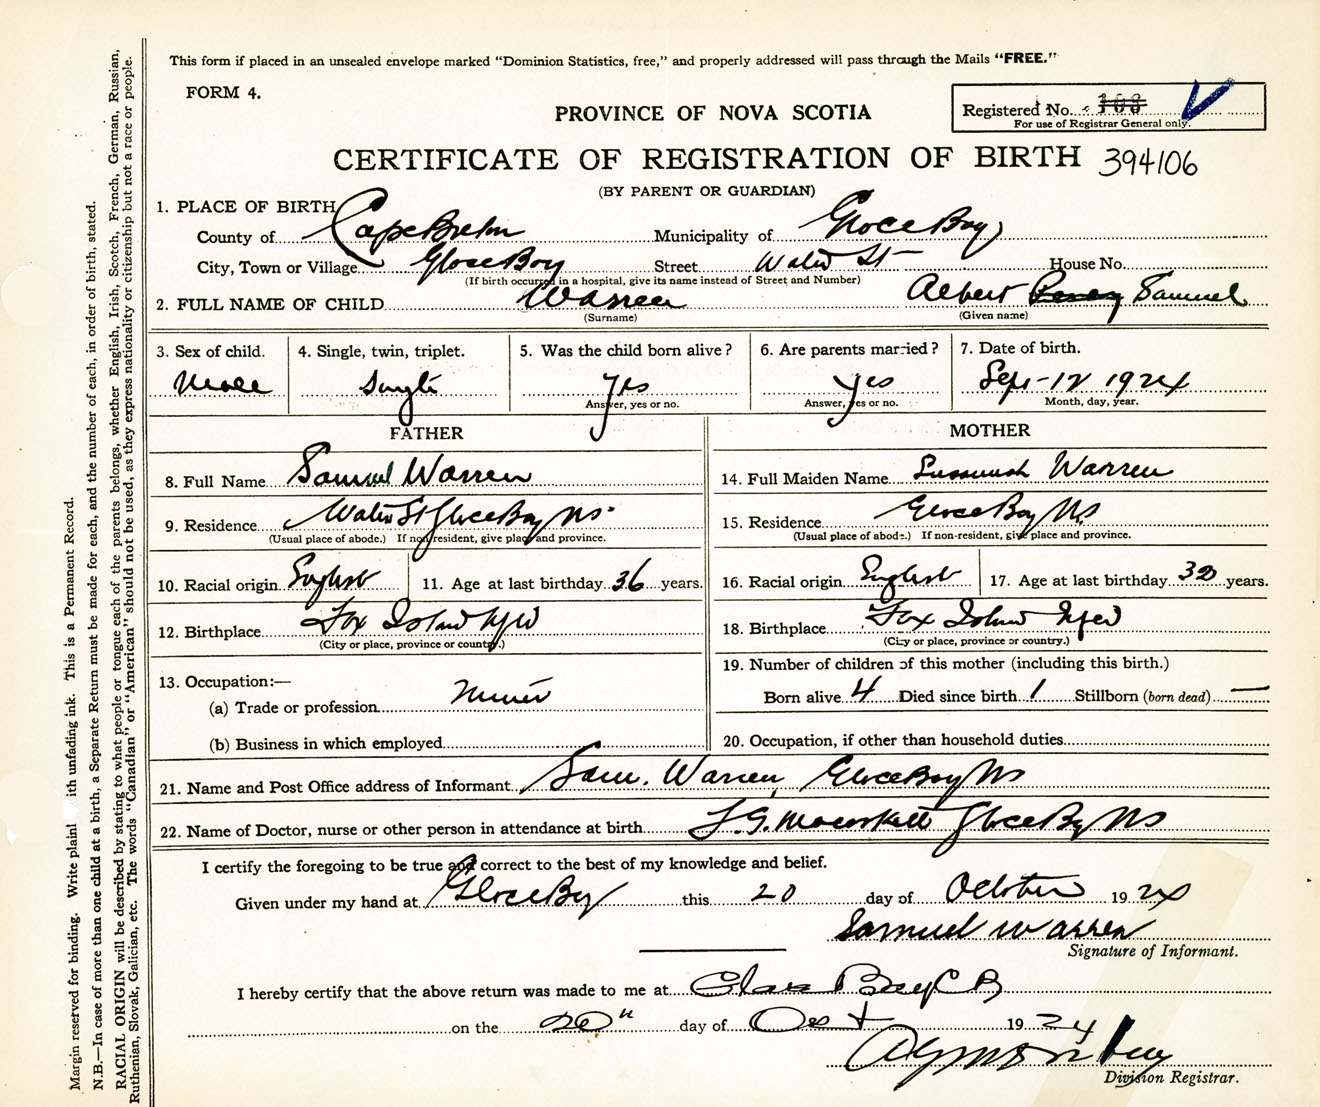 This form if placed in an unsealed envelope marked "Dominion Statistics, free," and properly addressed will pass through the Mails "FREE."
FORM 4.
PROVINCE OF NOVA SCOTIA
Registered No. 103
For use of Registrar General only.
CERTIFICATE OF REGISTRATION OF BIRTH 394106
(BY PARENT OR GUARDIAN)
1. PLACE OF BIRTH
County of Cape Breton Municipality of Glace Bay
City, Town or Village Glace Bay Street Water St House No.
(If birth occurred in a hospital, give its name instead of Street and Number)
2. FULL NAME OF CHILD Warren Albert Percy Samuel
(Surname) (Given name)
3. Sex of child. 4. Single, twin, triplet. 5. Was the child born alive? 6. Are parents married? 7. Date of birth.
Male Single Yes Yes Sept-12 1924
Answer, yes or no. Answer, yes or no. Month, day, year.
FATHER MOTHER
8. Full Name Samuel Warren 14. Full Maiden Name Warren
9. Residence Water St Glace Bay NS 15. Residence Glace Bay NS
(Usual place of abode.) If non-resident, give place and province. (Usual place of abode.) If non-resident, give place and province.
10. Racial origin English 11. Age at last birthday 36 years. 16. Racial origin English 17. Age at last birthday years.
12. Birthplace Fox Island Nfld 18. Birthplace Fox Island Nfld
(City or place, province or country.) (City or place, province or country.)
13. Occupation:— 19. Number of children of this mother (including this birth.)
(a) Trade or profession Miner Born alive 4 Died since birth 1 Stillborn (born dead) —
(b) Business in which employed 20. Occupation, if other than household duties
21. Name and Post Office address of Informant Sam. Warren, Glace Bay NS
22. Name of Doctor, nurse or other person in attendance at birth Glace Bay NS
I certify the foregoing to be true and correct to the best of my knowledge and belief.
Given under my hand at Glace Bay this 20 day of October 1924
Samuel Warren
Signature of Informant.
I hereby certify that the above return was made to me at Glace Bay C B
on the 20" day of Oct 1924
Division Registrar.
Margin reserved for binding. Write plainl ith unfading ink. This is a Permanent Record.
N.B.—In case of more than one child at a birth, a Separate Return must be made for each, and the number of each, in order of birth, stated.
RACIAL ORIGIN will be described by stating to what people or tongue each of the parents belongs, whether English, Irish, Scotch, French, German, Russian,
Ruthenian, Slovak, Galician, etc. The words "Canadian" or "American" should not be used, as they express nationality or citizenship but not a race or people.